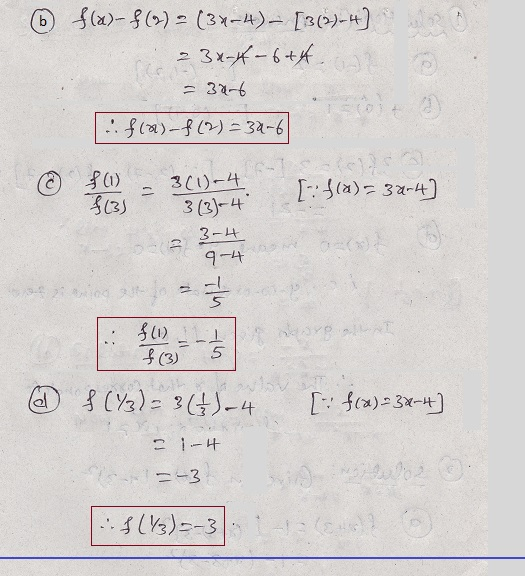 (b) f(x) - f(2) = (3x-4) - [3(2)-4]
= 3x - 4 - 6 + 4
= 3x-6
∴ f(x) - f(2) = 3x-6
(c) f(1)/f(3) = 3(1)-4 / 3(3)-4 [∵ f(x) = 3x-4]
= 3-4 / 9-4
= -1/5
∴ f(1)/f(3) = -1/5
(d) f(1/3) = 3(1/3) - 4 [∵ f(x) = 3x-4]
= 1-4
= -3
∴ f(1/3) = -3